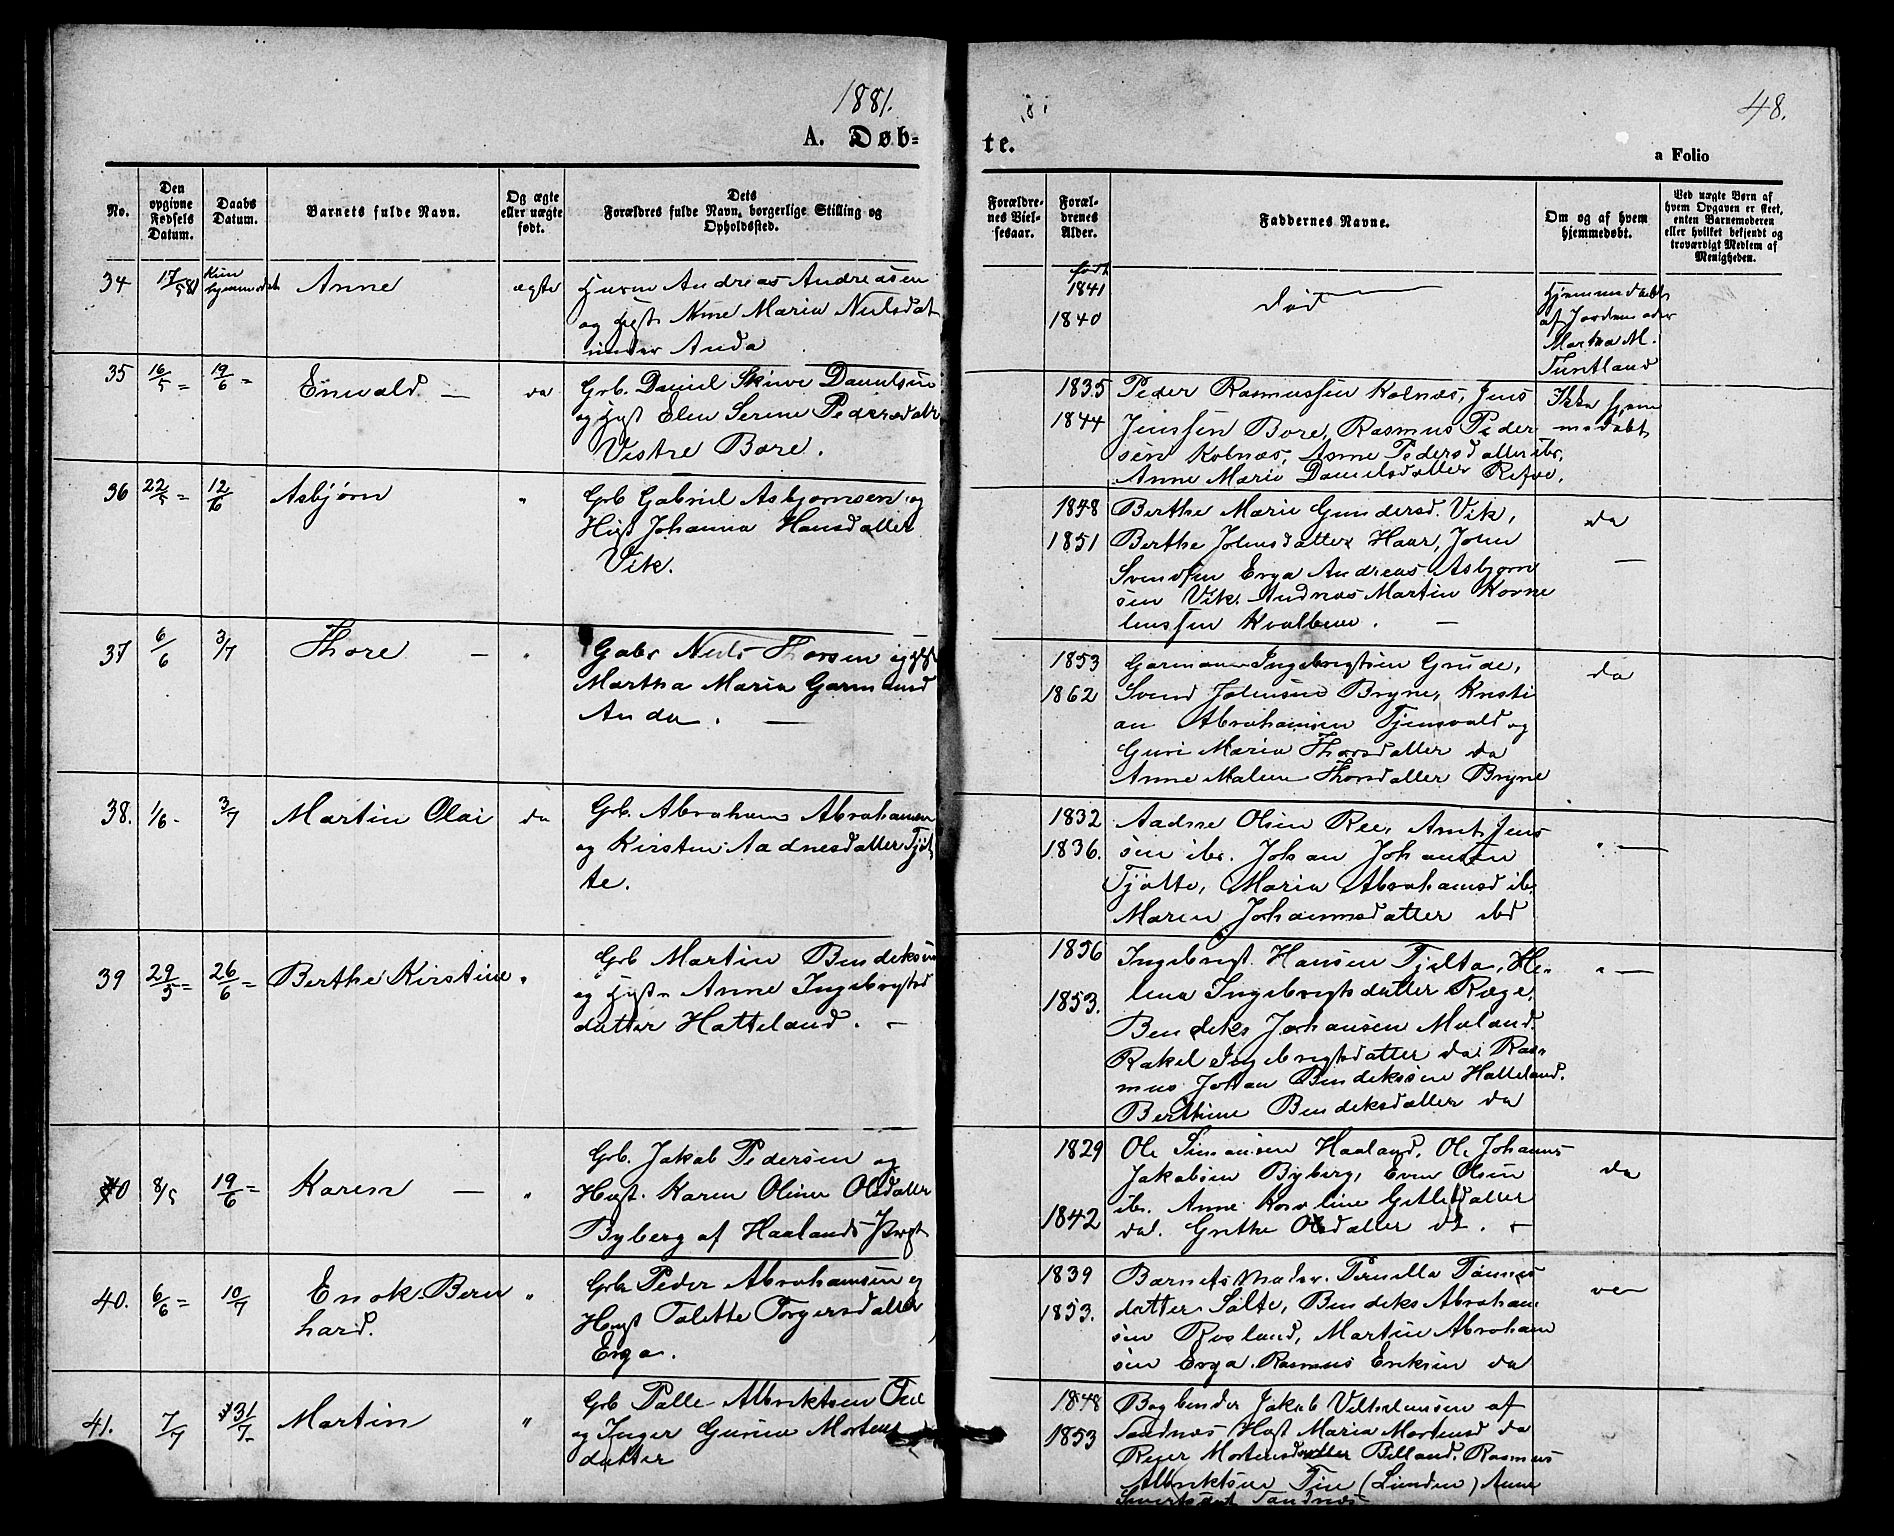 1881.
48.
A. Døb-
te.
a Folio
No.
Den opgivne Fødsels Datum.
Daabs Datum.
Barnets fulde Navn.
Og ægte eller uægte født.
Dets Forældres fulde Navn, borgerlige Stilling og Opholdssted.
Forældrenes Vielsesaar.
Forældrenes Alder.
Faddernes Navne.
Om og af hvem hjemmedøbt.
Ved uægte Børn af hvem Opgaven er skeet, enten Barnemoderen eller hvilket bekjendt og troværdigt Medlem af Menigheden.
34 17/5 81 Kun hjemmedøbt Anne ægte Andreas Andreasen
og Hust Ane Maria Nilsdat
under Anda
født
1841
1840
død
Hjemmedøbt
af Jordemoder
Martha M.
Tuntland
35 16/5 = 19/6 = Enevald — do Grb. Daniel Skinve Danielsen
og Hust Elen Serine Pedersdatr
Vestre Bore.
1835 Peder Rasmussen Kolnæs, Jens
1844 Jenssen Bore, Rasmus Peder
sen Kolnæs, Anne Pedersdatter ibr.
Anne Marie Danielsdatter Refve.
Ikke hjem
medøbt
36 22/5 = 12/6 Asbjørn " Grb Gabriel Asbjørnsen og
Hust Johanna Hansdatter
Vik.
1848 Berthe Marie Gundersd. Vik,
1851 Berthe Johnsdatter Haar, John
Svendsen Erga Andreas Asbjørn
sen Vik. Andreas Martin Korne
liussen Kvalbein. —
do
—
37 6/6 3/7 Thore — " Gabr Niels Thorsen og Hust
Martha Maria Garmand
Anda. —
1853 Garman Ingebrigtsen Grude,
1862 Svend Johnsen Bryne, Kristi
an Abrahamsen Tjensvold og
Guri Maria Thorsdatter do
Anne Malene Thorsdatter Bryne
do
38. 1/6 - 3/7 Martin Olai do Grb. Abraham Abrahamsen
og Kirsten Aadnesdatter Tjøt
te.
1832 Aadne Olsen Ree, Arnt Jens
1836. sen ibr. Johan Johansen
Tjøtte, Maria Abrahamsd ib.
Maren Johannesdatter ibd
" —
39 29/5 = 26/6 = Berthe Kirstine " Grb Martin Bendiksen
og Hust - Anne Ingebrigtsd
datter Hatteland. —
1856 Ingebrigt Hansen Tjelta, He-
1853. lena Ingebrigtsdatter Ræge.
Bendiks Johansen Maland.
Rakel Ingebrigtsdatter do. Ras-
mus Johan Bendiksen Hatteland.
Berthine Bendiksdatter do
" —
40 8/5 19/6 = Karen — " Grb. Jakob Pedersen og
Hust. Karen Oline Olsdatter
Byberg af Haalands Prgt
1829 Ole Simonsen Haaland, Ole Johannes
Jakobsen Byberg, Even Olsen
ibr. Anne Karoline Gitlesdatter
1842 do. Grethe Olsdatter do. —
do
40. 6/6 = 10/7 Enok Bern
hard. " Grb Peder Abrahamsen og
Hust Talette Torgersdatter
Erga.
1839 Barnets Moder. Pernella Tønnes
1853. datter Salte, Bendiks Abraham
sen Rosland, Martin Abraham
sen Erga. Rasmus Eriksen do
41. 7/7 31/7 Martin " Grb Palle Albriktsen
og Inger Gurina Mortens
datter
1848 Bogbinder Jakob Vilhelmsen af
1853 Sandnæs Hust Maria Mortensd do
Reier Mortensdatter Billand. Rasmus
Albriktsen (Lunden) Anne
Sandnæs